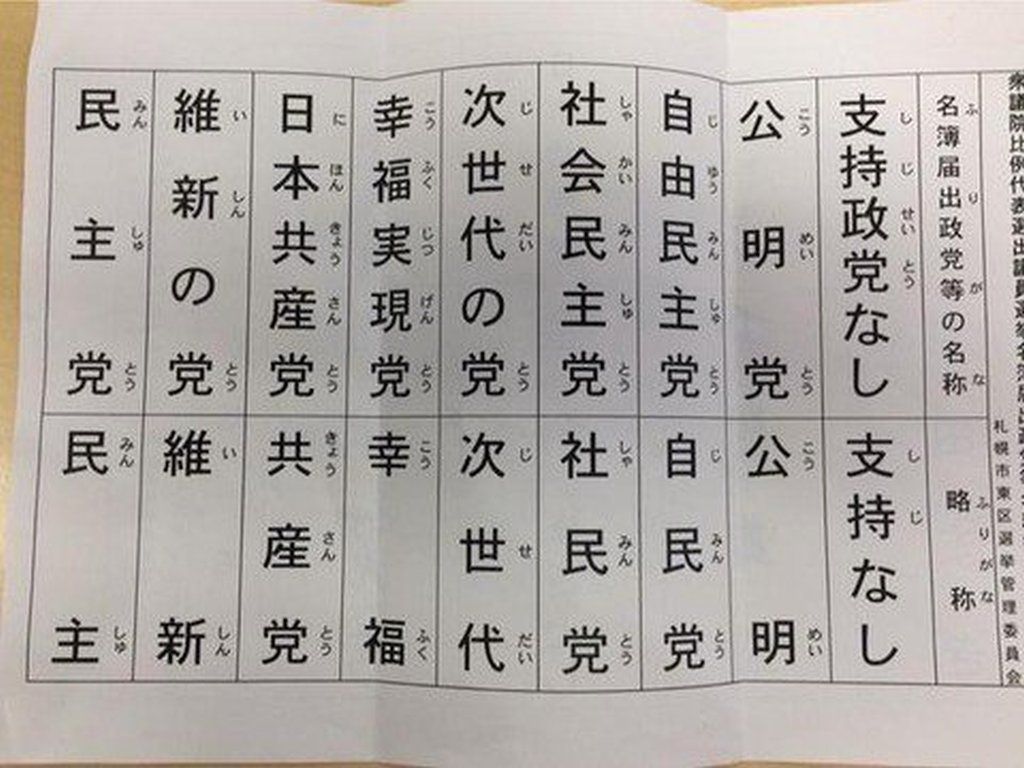 衆議院比例代表選出議員選挙名簿届出政
札幌市東区選挙管理委員会
ふりがな
名簿届出政党等の名称
しじせいとう
支持政党なし
こうめいとう
公明党
じゆうみんしゅとう
自由民主党
しゃかいみんしゅとう
社会民主党
じせだいとう
次世代の党
こうふくじつげんとう
幸福実現党
にほんきょうさんとう
日本共産党
いしんとう
維新の党
みんしゅとう
民主党
ふりがな
略称
しじ
支持なし
こうめい
公明
じみんとう
自民党
しゃみんとう
社民党
じせだい
次世代
こうふく
幸福
きょうさんとう
共産党
いしん
維新
みんしゅ
民主